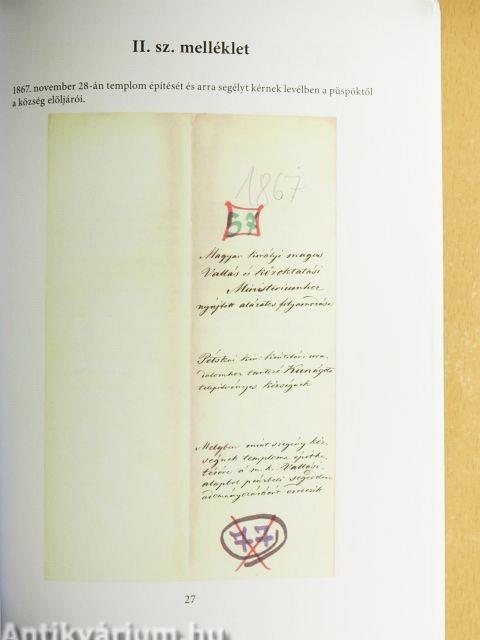 II. sz. melléklet
1867. november 28-án templom építését és arra segélyt kérnek levélben a püspöktől
a község elöljárói.
1867
57
Magyar királyi magas
Vallás és közoktatási
Ministeriumhoz
nyujtott alázatos folyamodása
kir. tartozó Kunágota
telepitvényes községnek
Melyben mint szegény köz,
ségnek temploma épitte,
tésére a m. k. Vallási
alapbol pénzbeli segedelem
esedezik
77
27
Antikvárium.hu